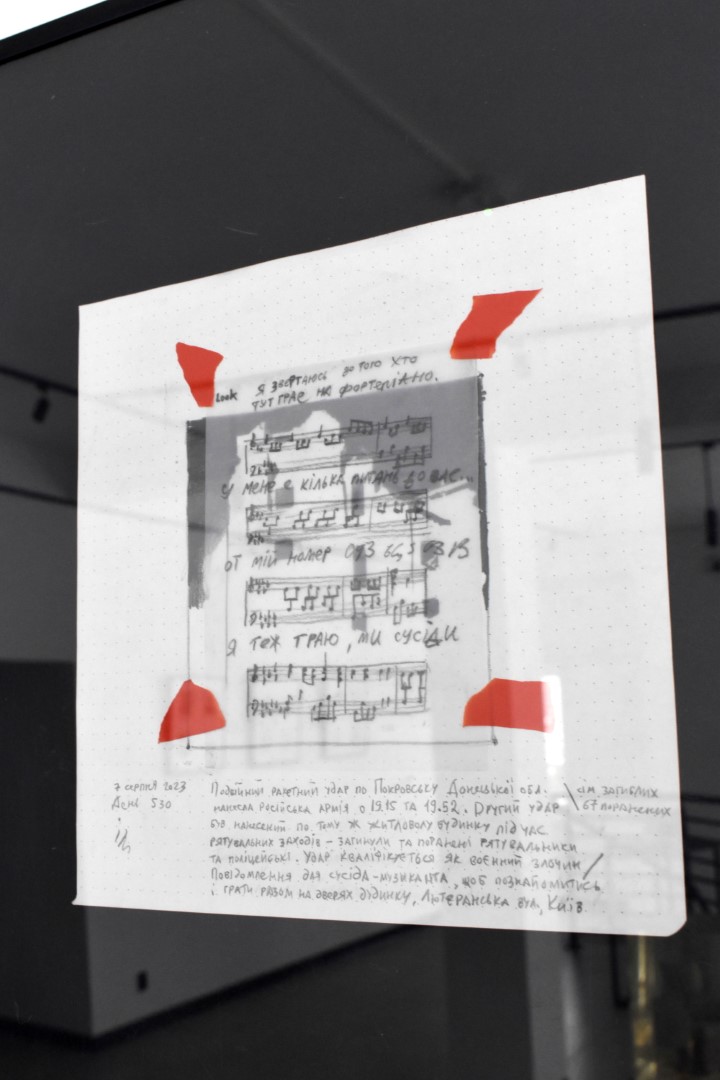 Look
Я ЗВЕРТАЮСЬ ДО ТОГО ХТО
ТУТ ГРАЄ НА ФОРТЕПІАНО.
У МЕНЕ Є КІЛЬКА ПИТАНЬ ДО ВАС...
ОТ МІЙ НОМЕР
Я ТЕЖ ГРАЮ, МИ СУСІДИ
7 серпня 2023
День 530
Подвійний ракетний удар по Покровську Донецької обл.
нанесла російська армія о 19.15 та 19.52. Другий удар
був нанесений по тому ж житловому будинку під час
рятувальних заходів – загинули та поранені рятувальники
та поліцейські. Удар кваліфікується як воєнний злочин /
Повідомлення для сусіда-музиканта, щоб познайомитись
і грати разом на дверях будинку, Лютеранська вул, Київ.
загиблих
67 поранених